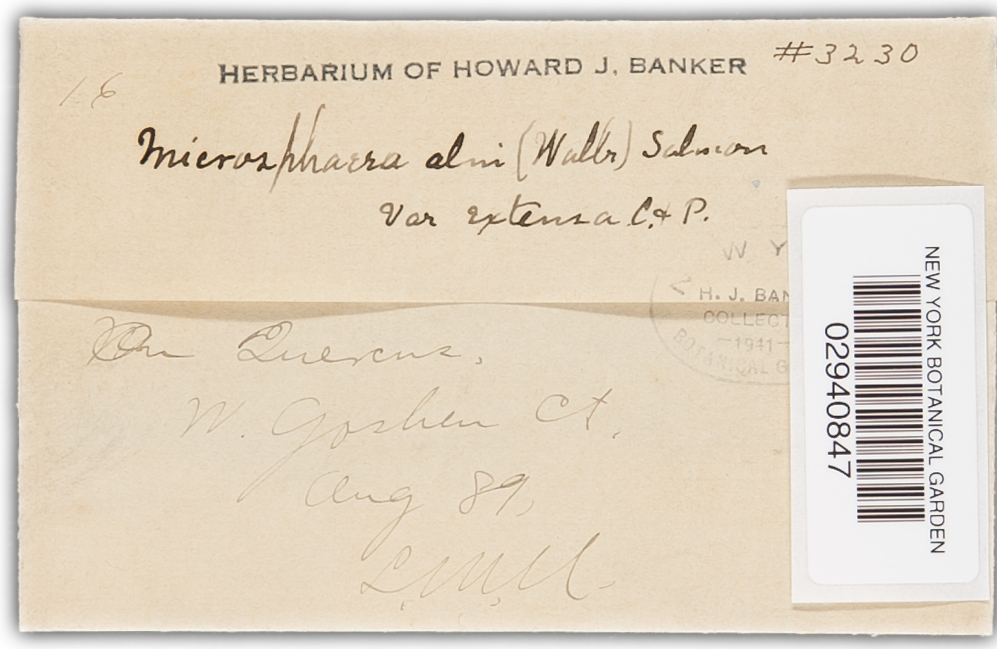 HERBARIUM OF HOWARD J. BANKER #3230
16
Microsphaera alni (Wallr) Salmon
Var extensa C. & P.
W Y
H. J. BAN
COLLECT
-1941-
BOTANICAL G
On Quercus.
W. Goshen Ct.
Aug 89,
NEW YORK BOTANICAL GARDEN
02940847